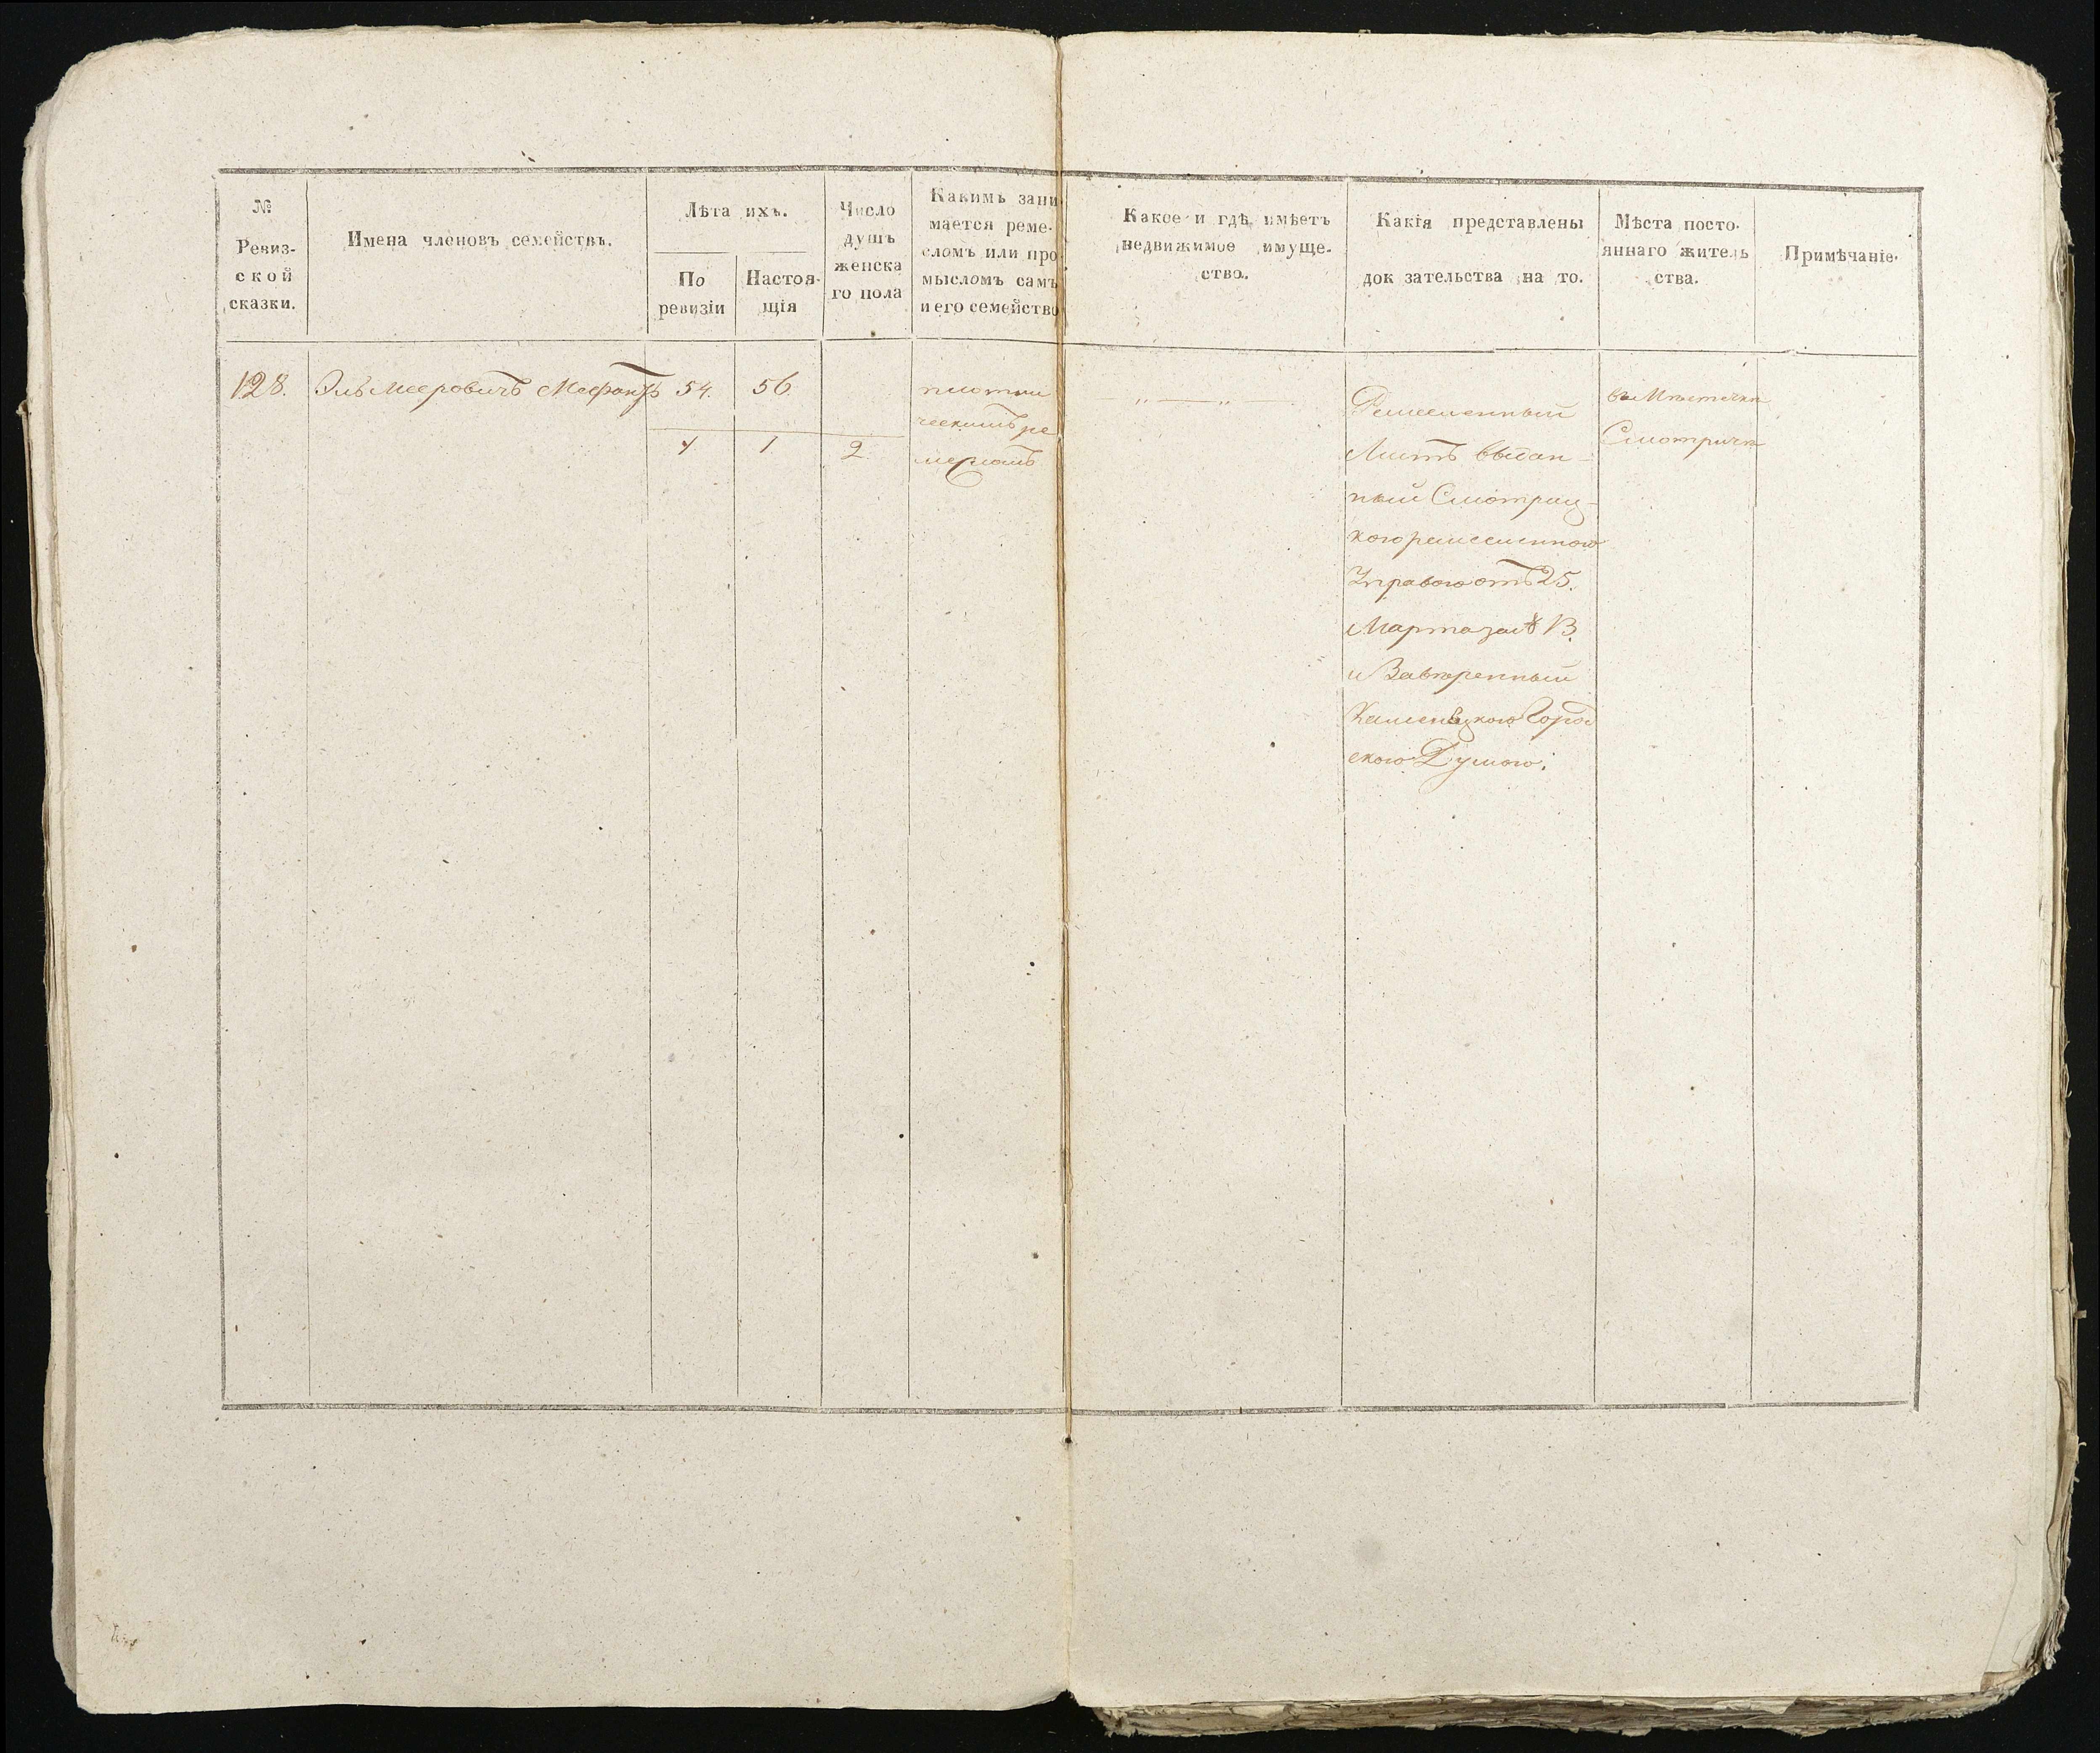 №
Ревиз-
ской
сказки.
Имена членовъ семействъ.
Лѣта ихъ.
По
ревизіи
Настоя-
щія
Число
душъ
женска
го пола
Какимъ зани
мается реме-
сломъ или про
мысломъ самъ
и его семейство
Какое и гдѣ имѣетъ
недвижимое имуще-
ство.
Какія представлены
док зательства на то.
Мѣста посто-
яннаго житель
ства.
Примѣчаніе.
128.
Мееровичъ
54.
56
1
1
2
плотни
ческимъ ре
месломъ
„ „
Ремесленный
Листъ выдан-
ный Смотриц-
кою ремесленною
Управою отъ 25.
Марта за № 13.
и Заверенный
Каменецкою Город
скою Думою.
въ Местечки
Смотричи